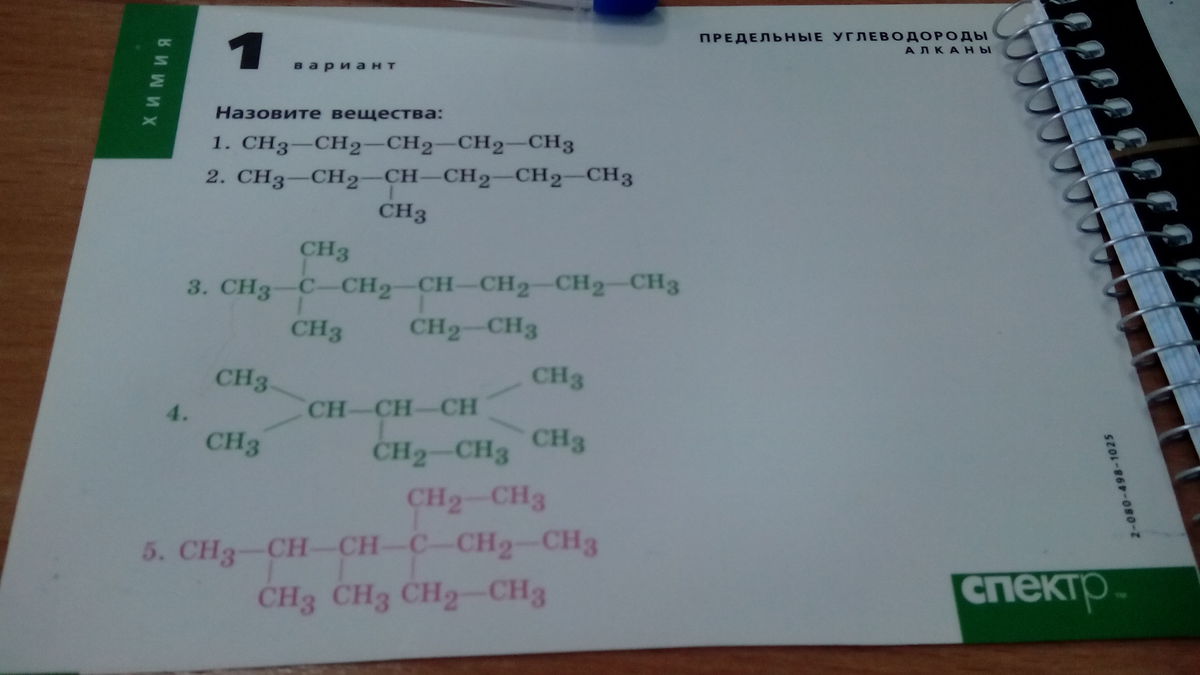 ХИМИЯ
1 вариант
ПРЕДЕЛЬНЫЕ УГЛЕВОДОРОДЫ
АЛКАНЫ
Назовите вещества:
1. CH3—CH2—CH2—CH2—CH3
2. CH3—CH2—CH—CH2—CH2—CH3
CH3
CH3
3. CH3—C—CH2—CH—CH2—CH2—CH3
CH3 CH2—CH3
CH3 CH3
4. CH—CH—CH
CH3 CH2—CH3 CH3
CH2—CH3
5. CH3—CH—CH—C—CH2—CH3
CH3 CH3 CH2—CH3
2-080-498-1025
спектр™